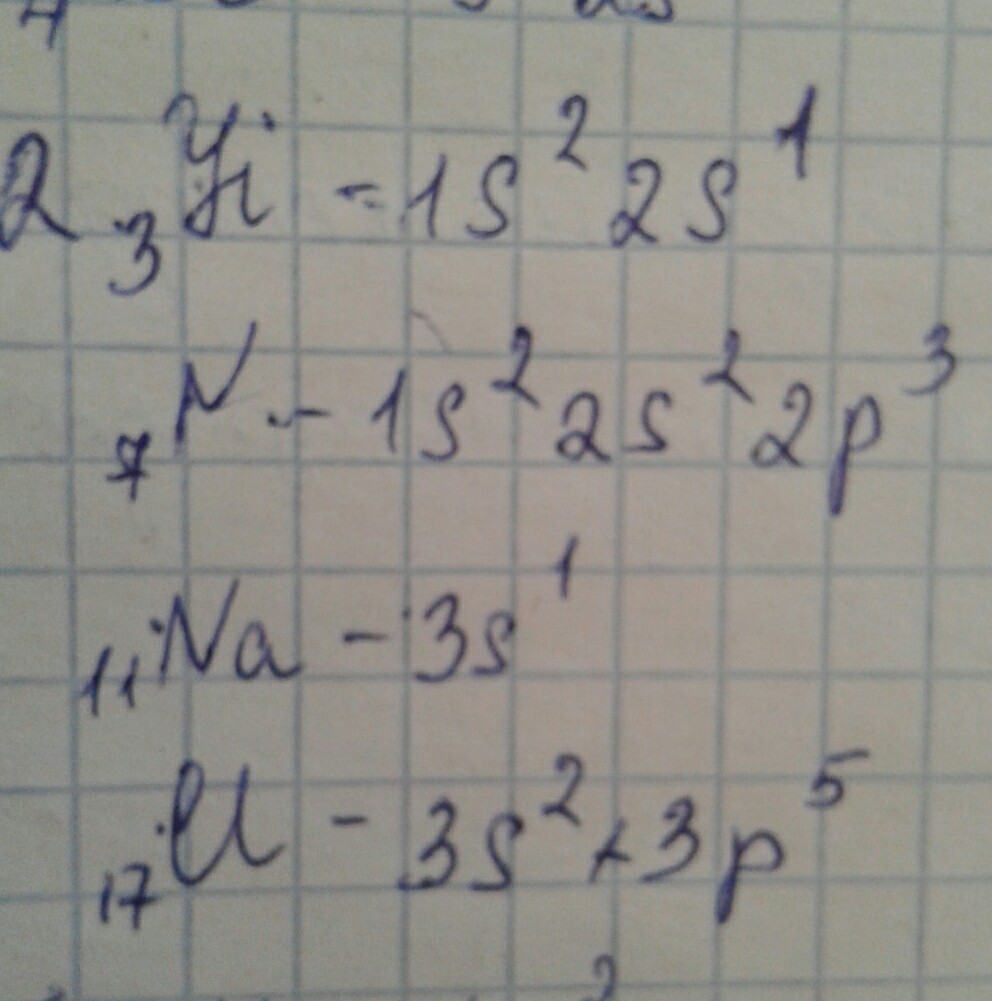 2 ₃Li - 1s² 2s¹
₇N - 1s² 2s² 2p³
₁₁Na - 3s¹
₁₇Cl - 3s² + 3p⁵